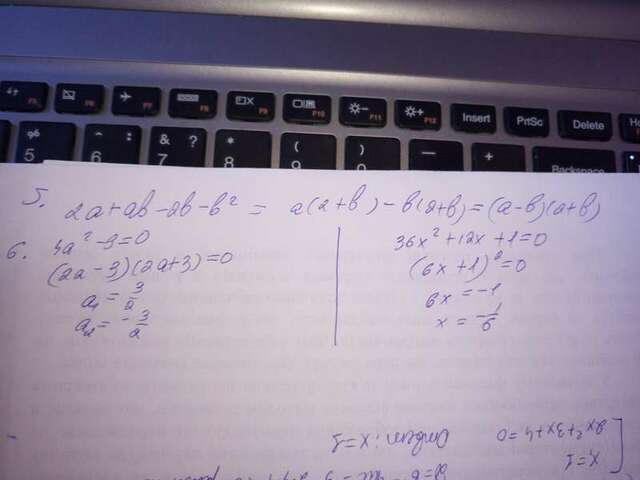 F5 F6 F7 F8 F9 F10 F11 F12 Insert PrtSc Delete Ho
% 5 ^ : 6 & ? 7 * 8 ( 9 ) 0 - + Backspace
5. 2a+ab-2b-b² = a(2+b)-b(2+b)=(a-b)(2+b)
6. 4a²-9=0
(2a-3)(2a+3)=0
a₁ = 3/2
a₂ = -3/2
36x²+12x+1=0
(6x+1)²=0
6x = -1
x = -1/6
x=1
2x²+3x+4=0